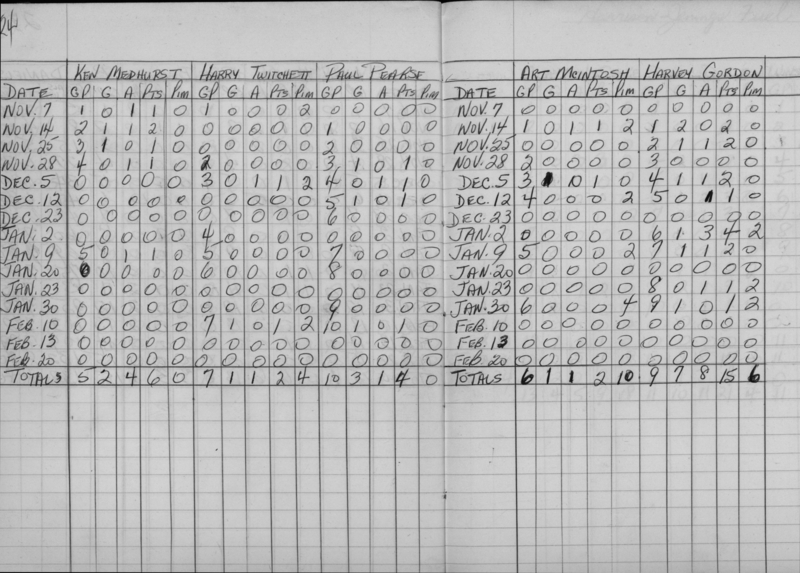 24
KEN MEDHURST HARRY TWITCHETT PAUL PEARSE
DATE GP G A Pts Pim GP G A Pts Pim GP G A Pts Pim
NOV. 7 1 0 1 1 0 1 0 0 0 2 0 0 0 0 0
NOV. 14 2 1 1 2 0 0 0 0 0 0 1 0 0 0 0
NOV. 25 3 1 0 1 0 0 0 0 0 0 2 0 0 0 0
NOV. 28 4 0 1 1 0 2 0 0 0 0 3 1 0 1 0
DEC. 5 0 0 0 0 0 3 0 1 1 2 4 0 1 1 0
DEC. 12 0 0 0 0 0 0 0 0 0 0 5 1 0 1 0
DEC. 23 0 0 0 0 0 0 0 0 0 0 6 0 0 0 0
JAN. 2 0 0 0 0 0 4 0 0 0 0 0 0 0 0 0
JAN. 9 5 0 1 1 0 5 0 0 0 0 7 0 0 0 0
JAN. 20 0 0 0 0 0 6 0 0 0 0 8 0 0 0 0
JAN. 23 0 0 0 0 0 0 0 0 0 0 0 0 0 0 0
JAN. 30 0 0 0 0 0 0 0 0 0 0 9 0 0 0 0
FEB. 10 0 0 0 0 0 7 1 0 1 2 10 1 0 1 0
FEB. 13 0 0 0 0 0 0 0 0 0 0 0 0 0 0 0
FEB. 20 0 0 0 0 0 0 0 0 0 0 0 0 0 0 0
TOTALS 5 2 4 6 0 7 1 1 2 4 10 3 1 4 0
ART MCINTOSH HARVEY GORDON
DATE GP G A Pts Pim GP G A Pts Pim
NOV. 7 0 0 0 0 0 0 0 0 0 0
NOV. 14 1 0 1 1 2 1 2 0 2 0
NOV. 25 0 0 0 0 0 2 1 1 2 0
NOV. 28 2 0 0 0 0 3 0 0 0 0
DEC. 5 3 1 0 1 0 4 1 1 2 0
DEC. 12 4 0 0 0 2 5 0 1 1 0
DEC. 23 0 0 0 0 0 0 0 0 0 0
JAN. 2 0 0 0 0 0 6 1 3 4 2
JAN. 9 5 0 0 0 2 7 1 1 2 0
JAN. 20 0 0 0 0 0 0 0 0 0 0
JAN. 23 0 0 0 0 0 8 0 1 1 2
JAN. 30 6 0 0 0 4 9 1 0 1 2
FEB. 10 0 0 0 0 0 0 0 0 0 0
FEB. 13 0 0 0 0 0 0 0 0 0 0
FEB. 20 0 0 0 0 0 0 0 0 0 0
TOTALS 6 1 1 2 10 9 7 8 15 6